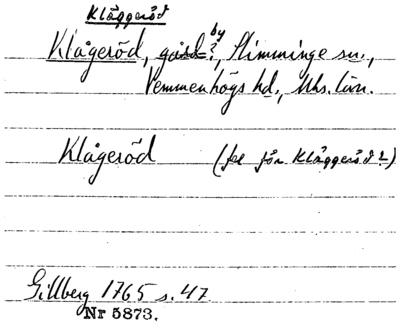 Kläggeröd
Klågeröd, gård?, by
Slimminge sn.,
Vemmenhögs hd., Mhs. län.
Klågeröd (fel för Kläggeröd?)
Gillberg 1765 s. 47
Nr 5873.